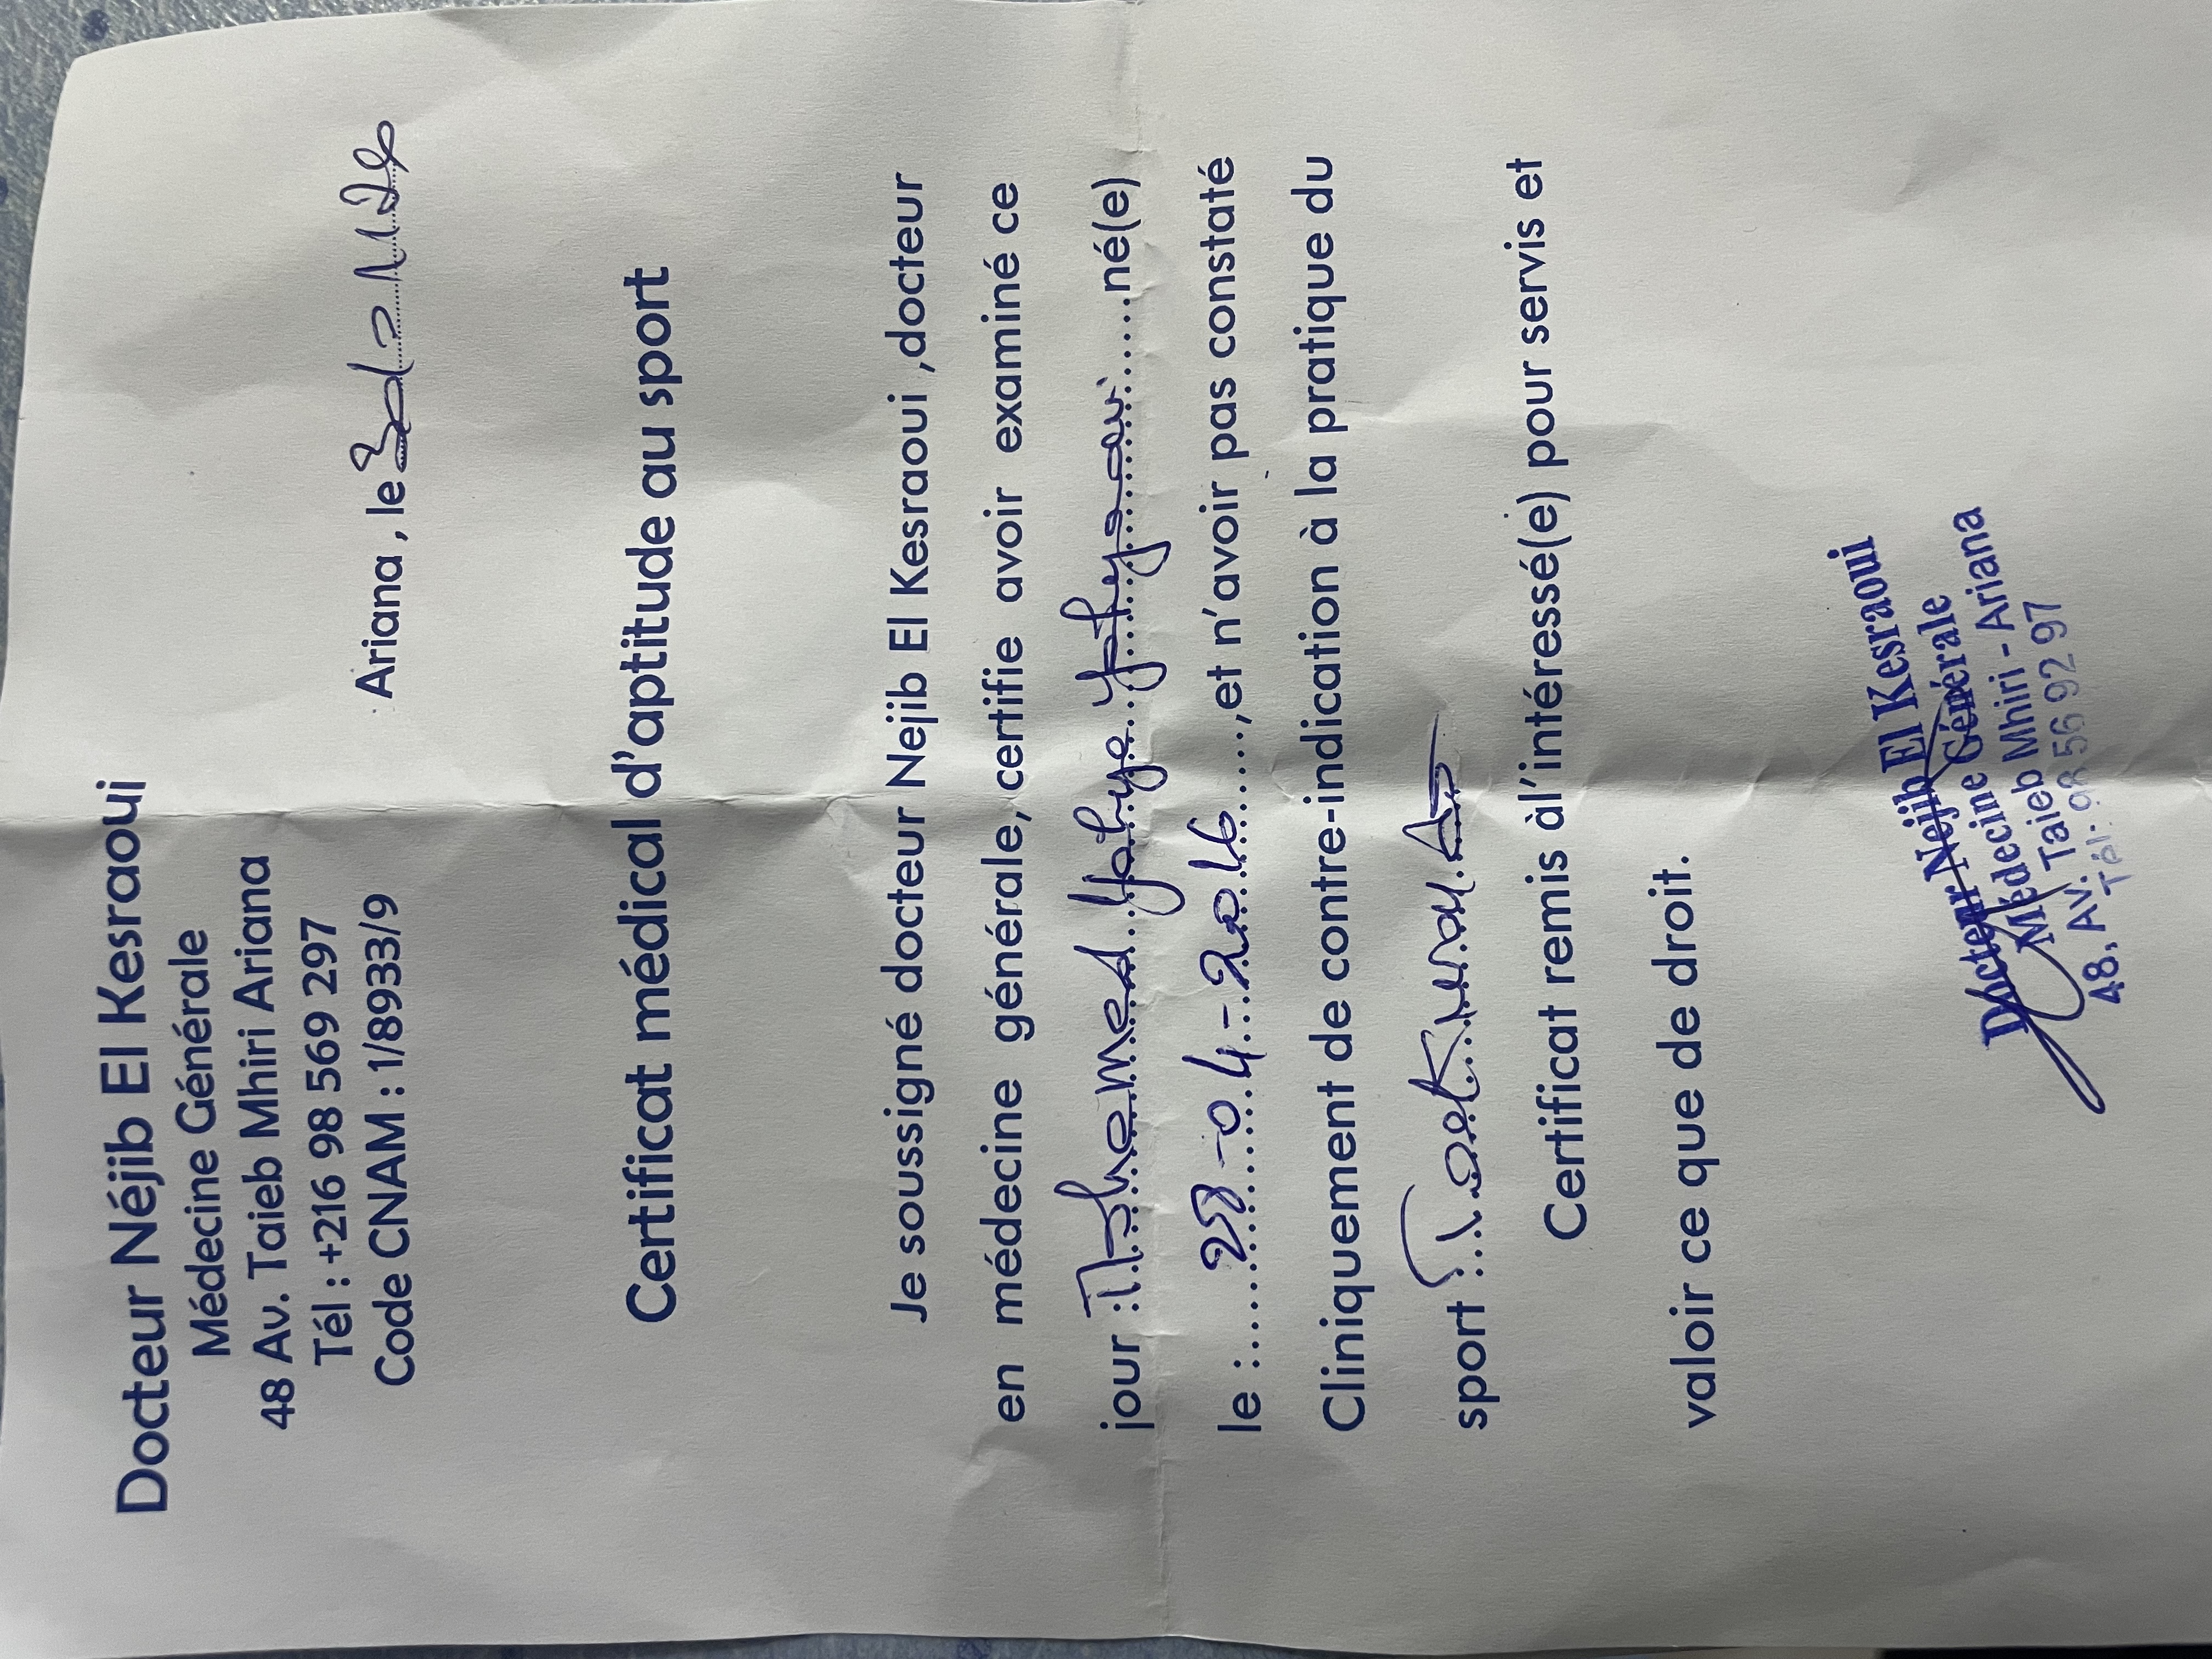 Docteur Néjib El Kesraoui
Médecine Générale
48 Av. Taieb Mhiri Ariana
Tél : +216 98 569 297
Code CNAM : 1/8933/9
Ariana , le
Certificat médical d'aptitude au sport
Je soussigné docteur Nejib El Kesraoui ,docteur
en médecine générale, certifie avoir examiné ce
jour : Mohamed Yahya né(e)
le : 28-04-2016 ,et n'avoir pas constaté
Cliniquement de contre-indication à la pratique du
sport
Certificat remis àl'intéressé(e) pour servis et
valoir ce que de droit.
Docteur Nejib El Kesraoui
Médecine Générale
48, Av. Taieb Mhiri - Ariana
Tél: 98 56 92 97